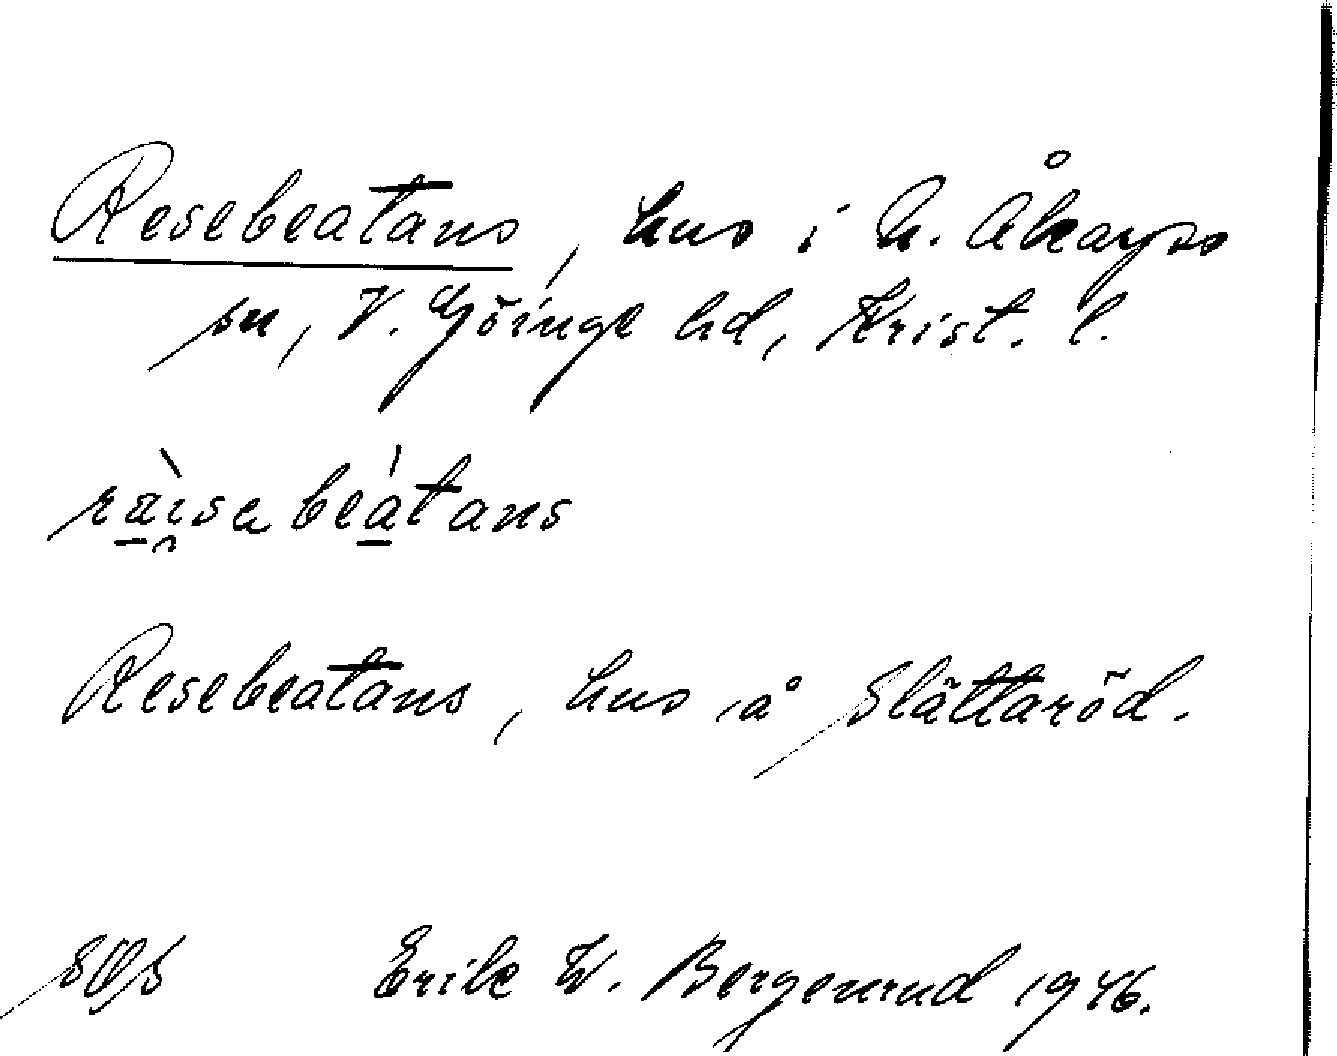 Resebeatans, hus i N. Åkarps
sn, V. Göinge hd, Krist. l.
ràisa beátans
Resebeatans, hus å Slättaröd.
Erik W. Bergenrud 1946.